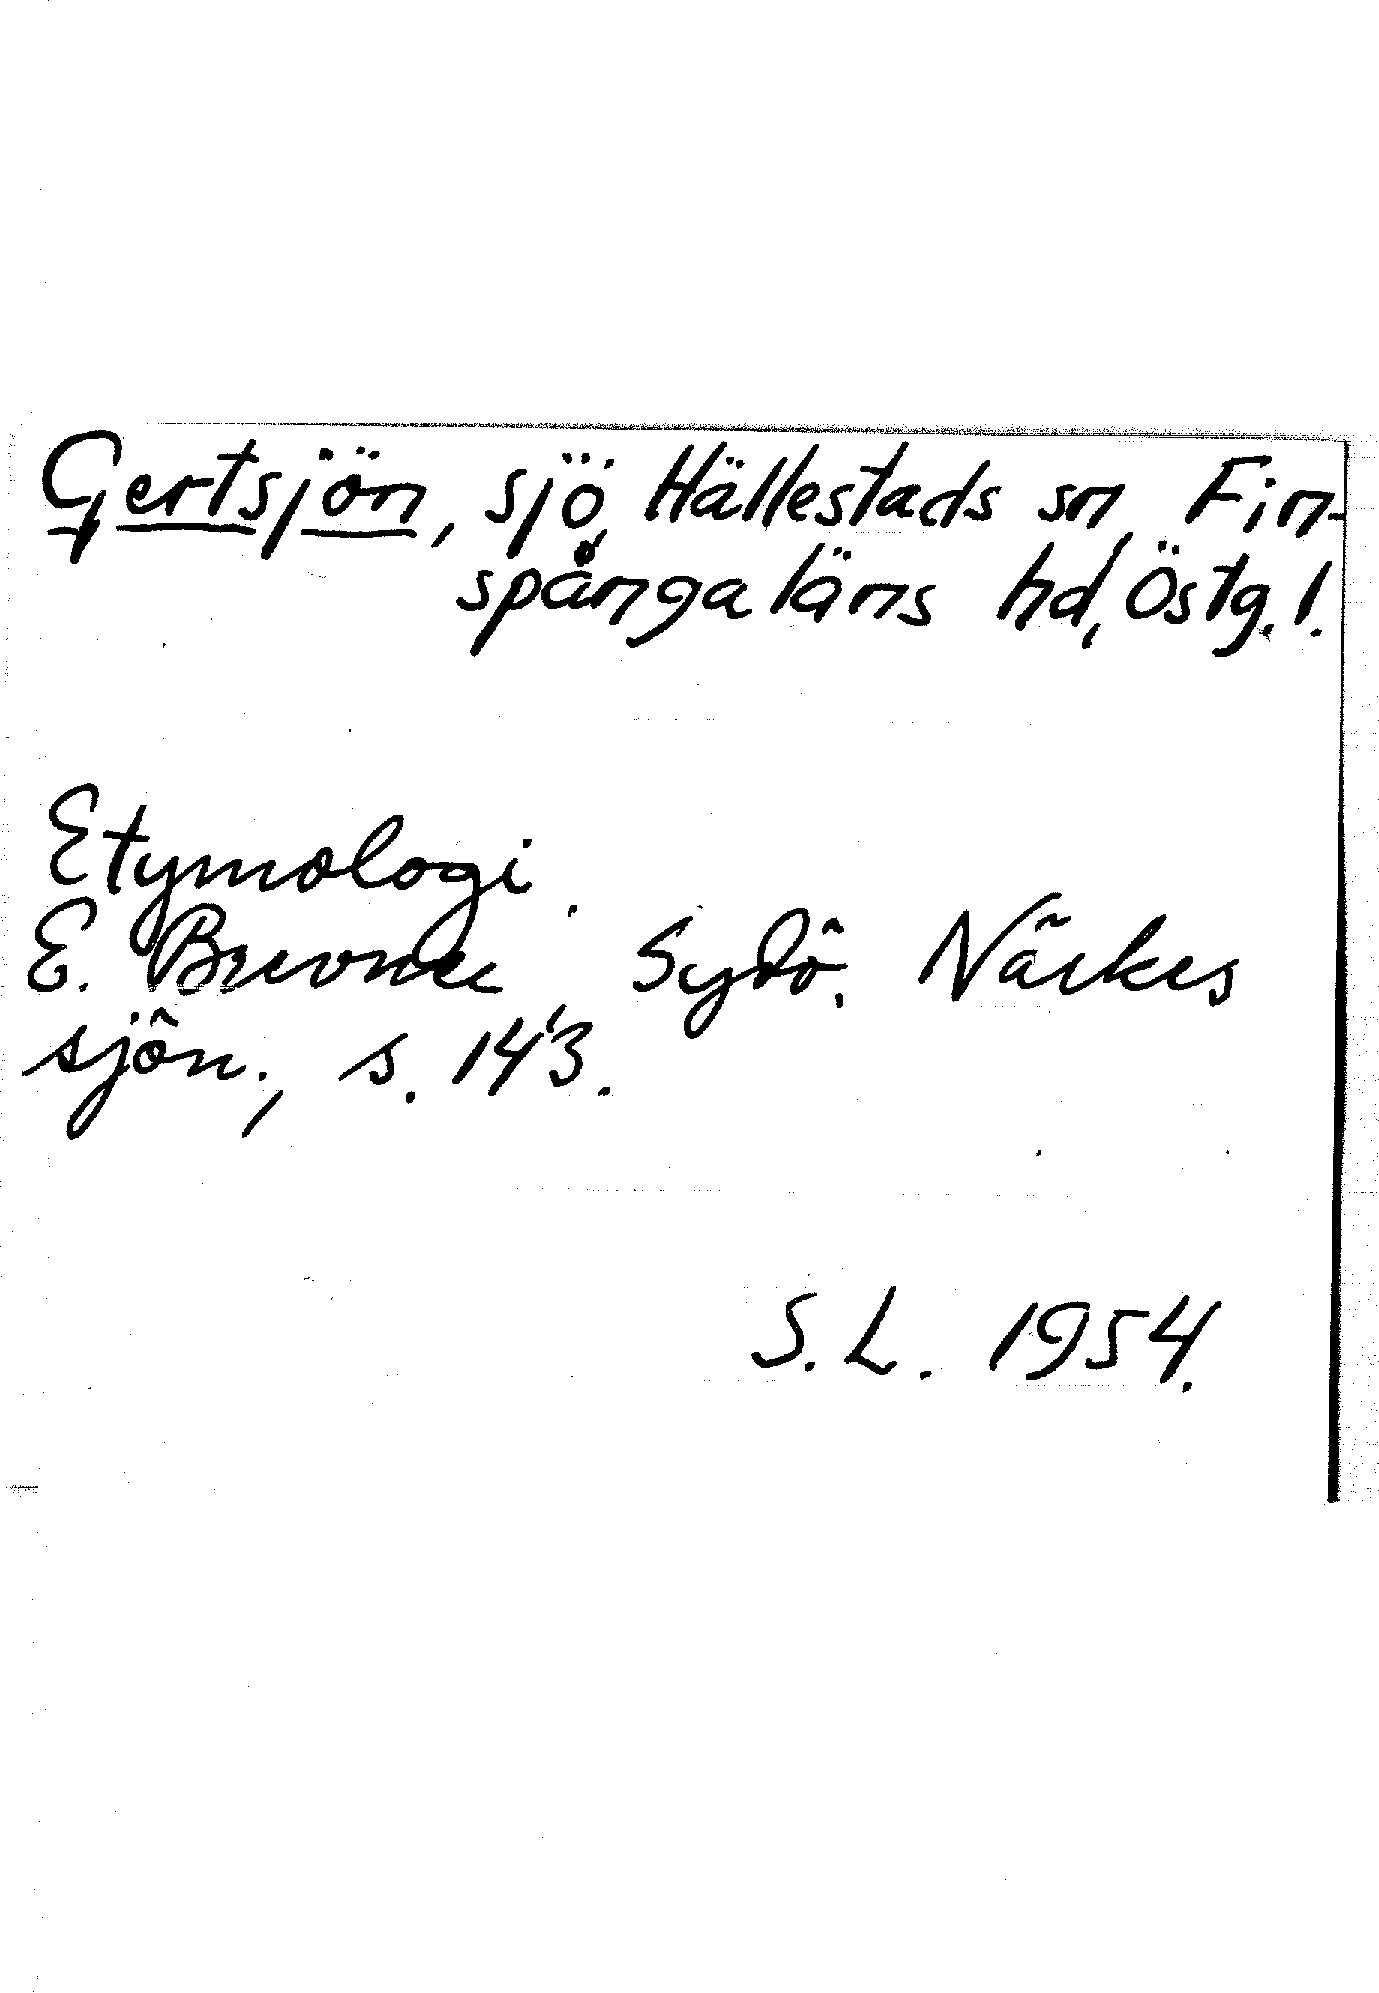 Gertsjön, sjö, Hällestads sn, Fin-
spånga läns hd, Östg. l.
Etymologi.
E. Brevner, Sydö. Närkes
sjön., s. 143.
S. L. 1954.